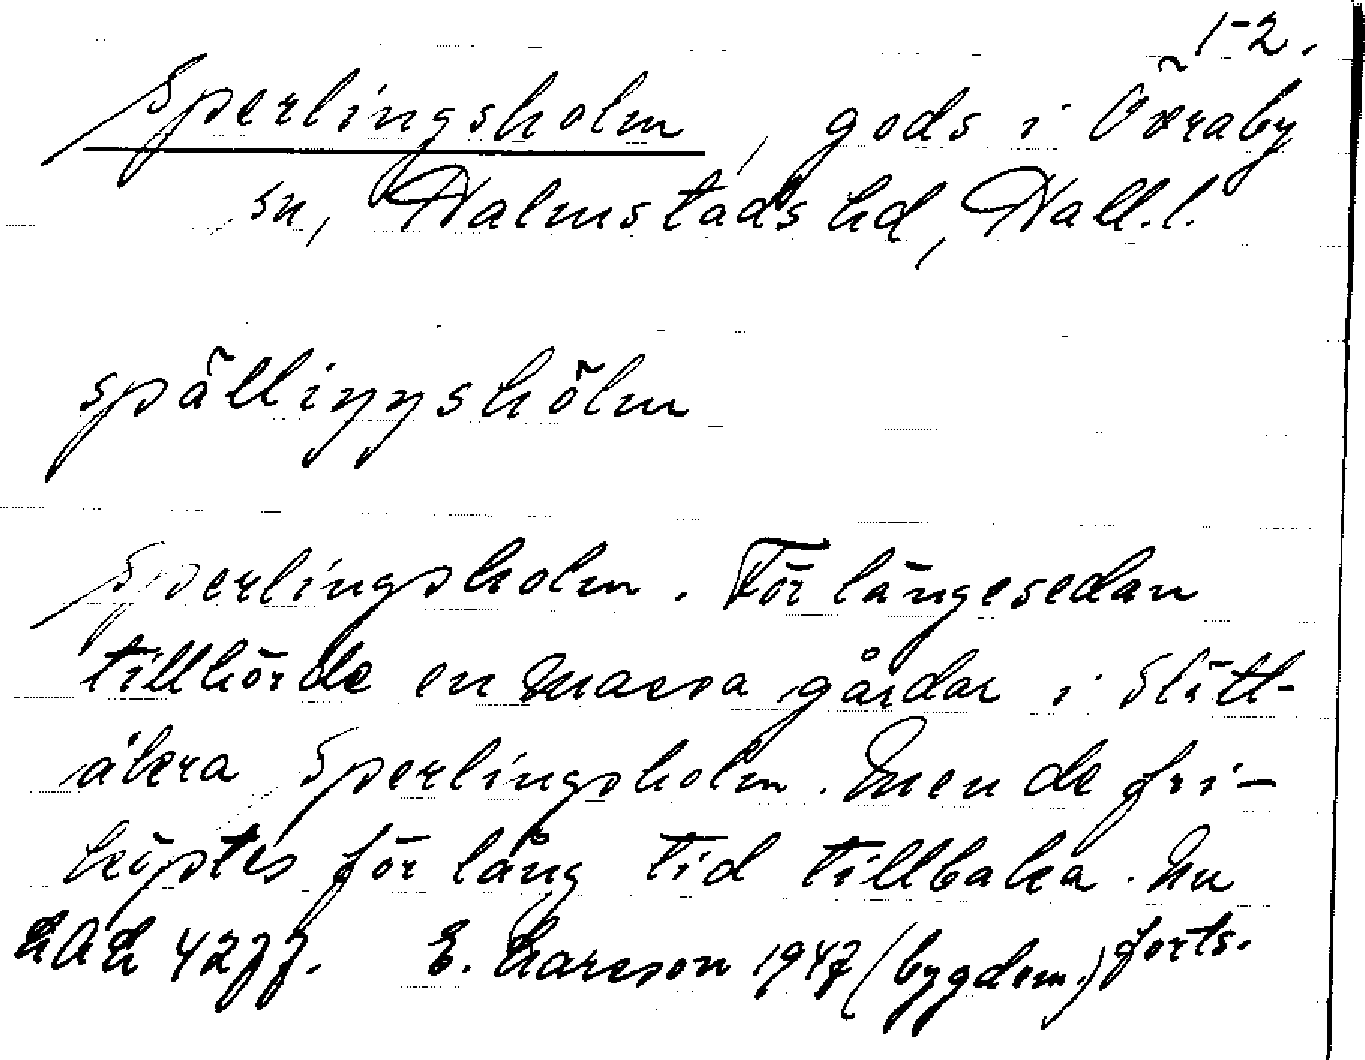 1-2.
Sperlingsholm, gods i Övraby
sn, Halmstads hd, Hall.l.
spällinnsholm
Sperlingsholm. För längesedan
tillhörde en massa gårdar i Slätt-
åkra Sperlingsholm. Men de fri-
köptes för lång tid tillbaka. Nu
LAL 4277. E. Larsson 1947 (bygdem.) forts.